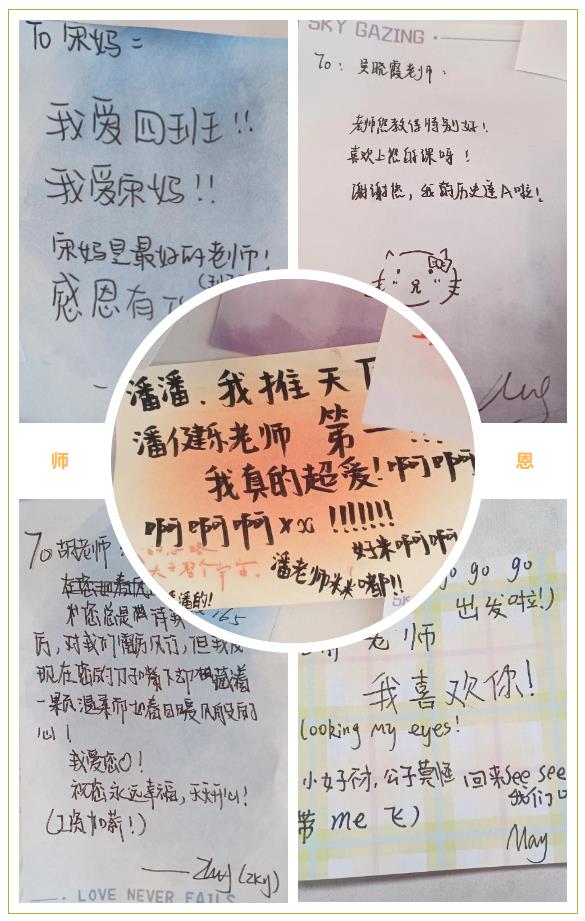 To 宋妈：
我爱四班!!
我爱宋妈!!
宋妈是最好的老师!
感恩有
SKY GAZING
To: 吴晓霞老师：
老师您教得特别好!
喜欢上您的课呀!
谢谢您，我的历史连A啦!
潘潘.我推天
潘健乐老师 第一!!!
我真的超爱!啊啊啊
啊啊啊 xx !!!!!!!
好米啊啊啊
潘老师米米嘟!!
师
恩
To 胡老师：
后，对我们雷厉风行，但我发
现在您的刀子嘴下却
藏着
一颗温柔而如春日暖风般的
心!
我爱您!
祝您永远幸福，天天开心!
(工资加薪!)
(zky)
LOVE NEVER FAILS
go go go
出发啦!)
老师
我喜欢你!
looking my eyes!
小女不才，公子莫怪
回来see see
我们
带 me 飞)
May